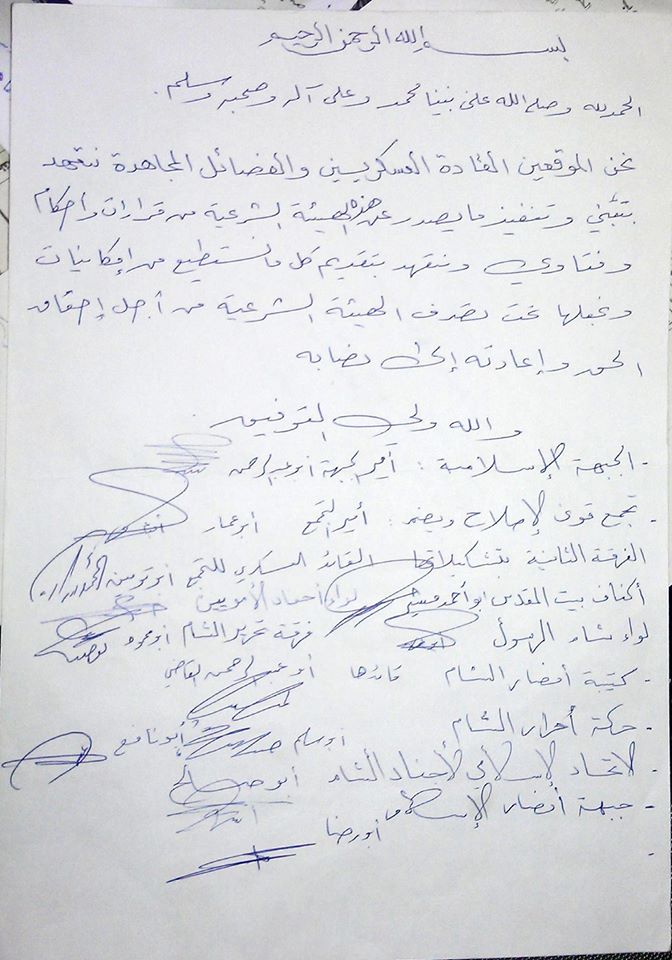 بسم الله الرحمن الرحيم
الحمد لله وصلى الله على نبينا محمد وعلى آله وصحبه وسلم.
نحن الموقعين القادة العسكريين والفصائل المجاهدة نتعهد
بتبني وتنفيذ ما يصدر عن هذه الهيئة الشرعية من قرارات وأحكام
وفتاوي ونتعهد بتقديم كل ما نستطيع من إمكانيات
ونجعلها تحت تصرف الهيئة الشرعية من أجل إحقاق
الحق وإعادته إلى نصابه
والله ولي التوفيق
- الجبهة الإسلامية : أمير الجبهة أبو عبد الرحمن
- تجمع قوى الإصلاح ويضم : أمير التجمع أبو عمار
الفرقة الثانية بتشكيلاتها القائد العسكري للتجمع
أكناف بيت المقدس أبو أحمد لواء أحفاد الأمويين
لواء شام الرسول فرقة تحرير الشام أبو محمود
- كتيبة أنصار الشام قائدها أبو عبد الرحمن القاضي
- حركة أحرار الشام أبو مسلم أبو نافع
- الاتحاد الإسلامي لأجناد الشام أبو صالح
- جبهة أنصار الإسلام أبو رضا
-